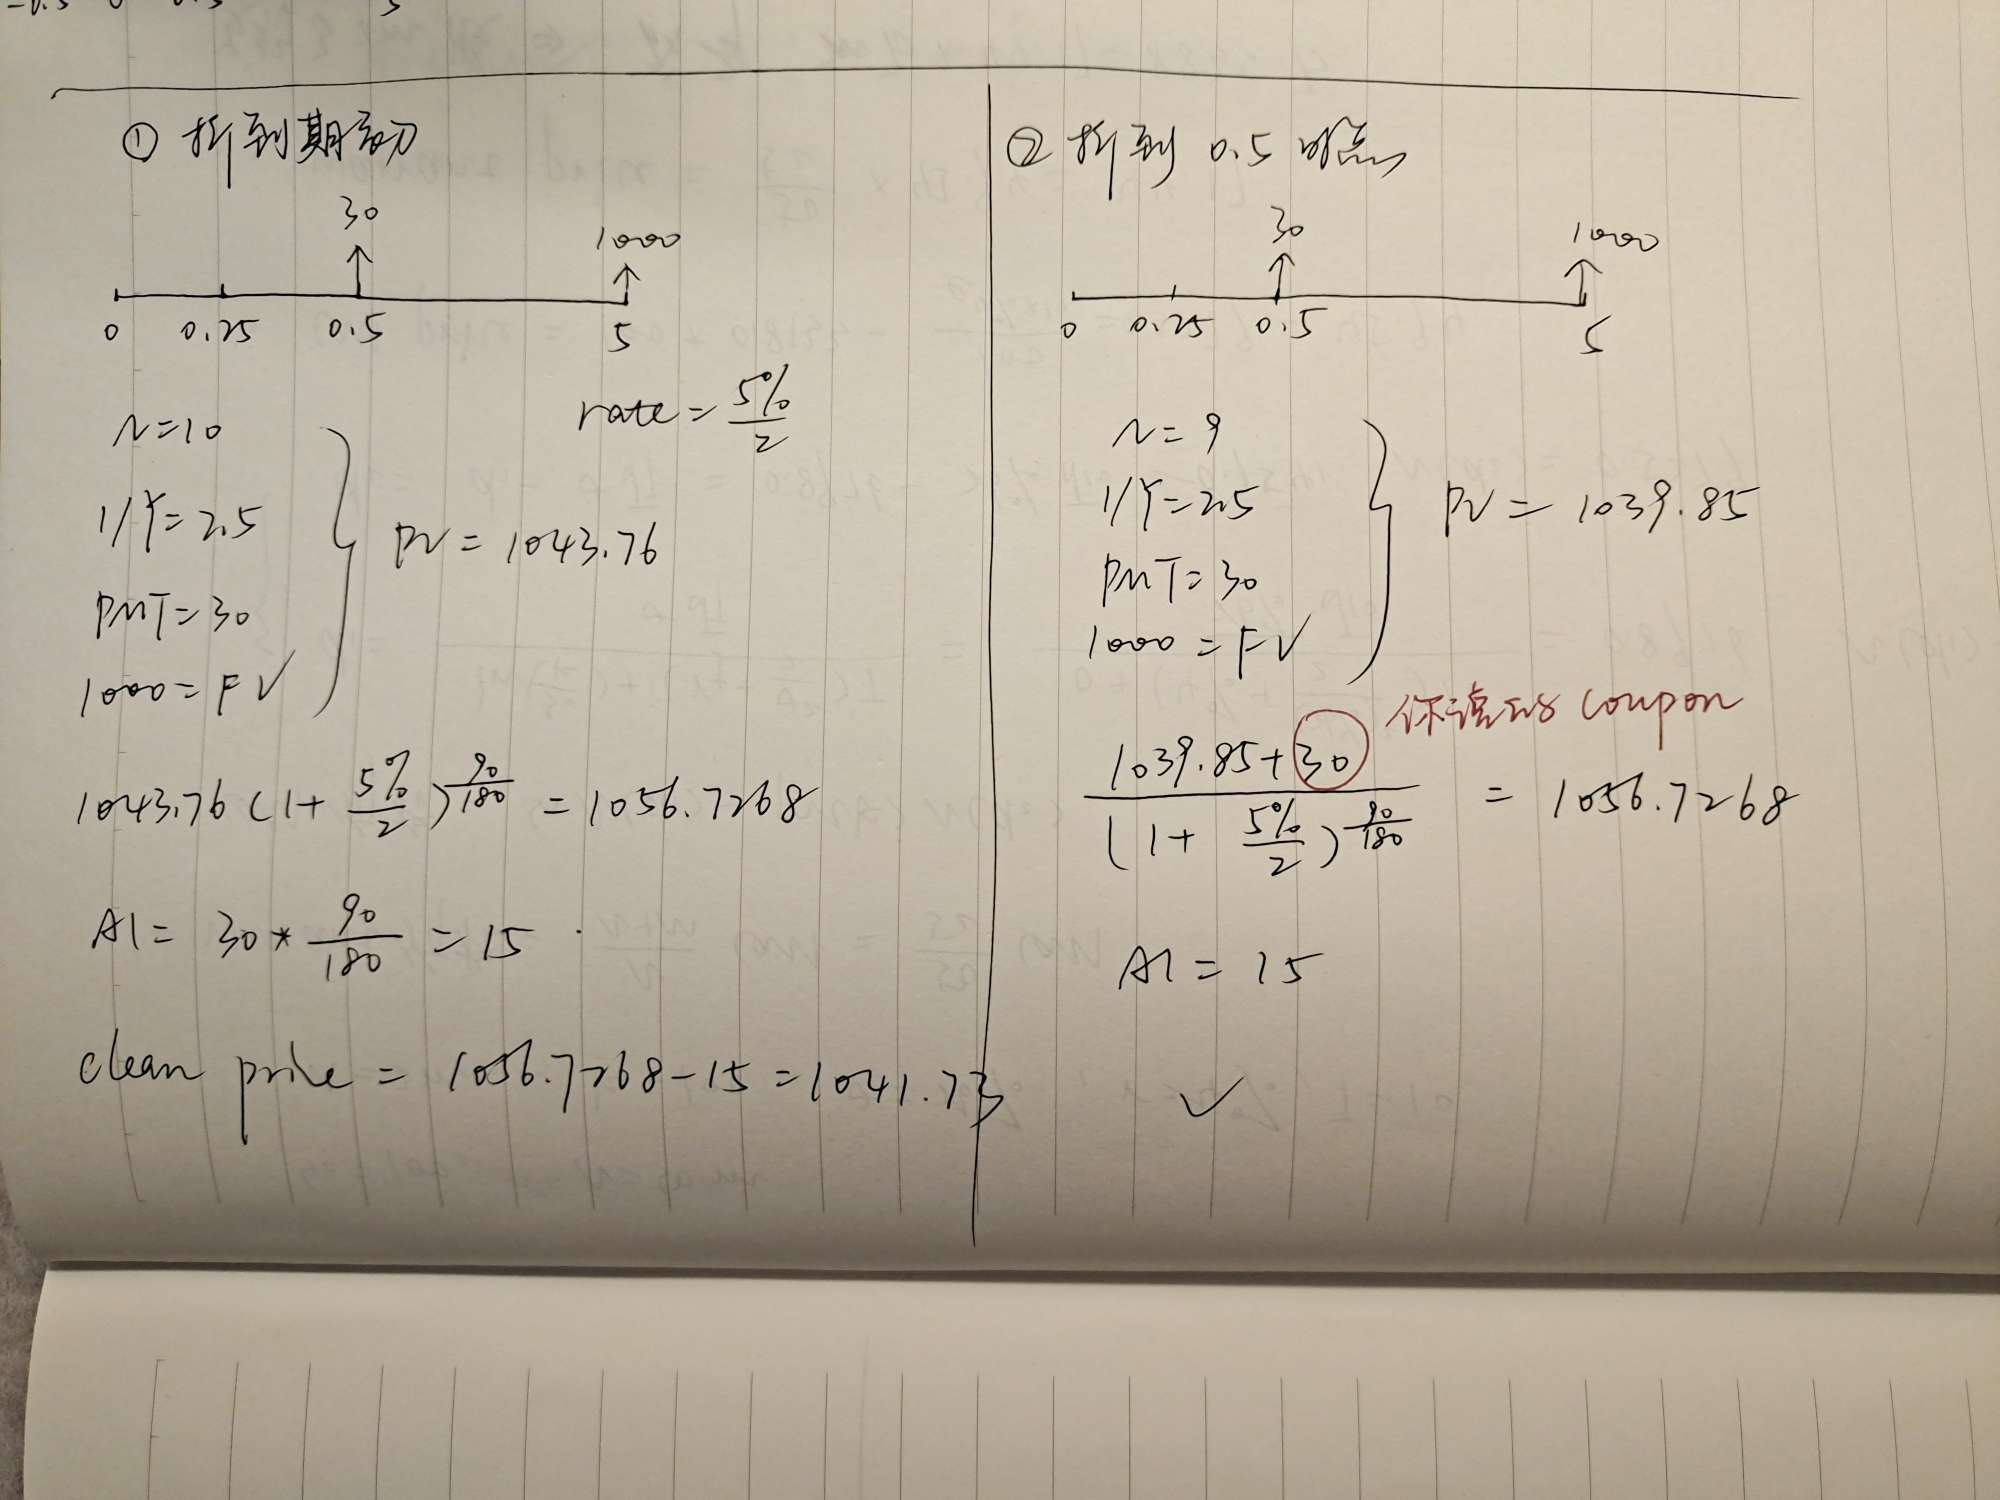 -0.5 0 0.5 5
① 折到期初
30
1000
0 0.25 0.5 5
rate = 5%/2
N=10
I/Y=2.5
PMT=30
1000=FV
PV = 1043.76
1043.76(1+5%/2)^90/180 = 1056.7268
AI = 30*90/180 = 15
clean price = 1056.7268-15=1041.73
② 折到 0.5 时点
30
1000
0 0.25 0.5 5
N=9
I/Y=2.5
PMT=30
1000=FV
PV = 1039.85
你漏的 coupon
1039.85+30/(1+5%/2)^90/180 = 1056.7268
AI = 15
✓